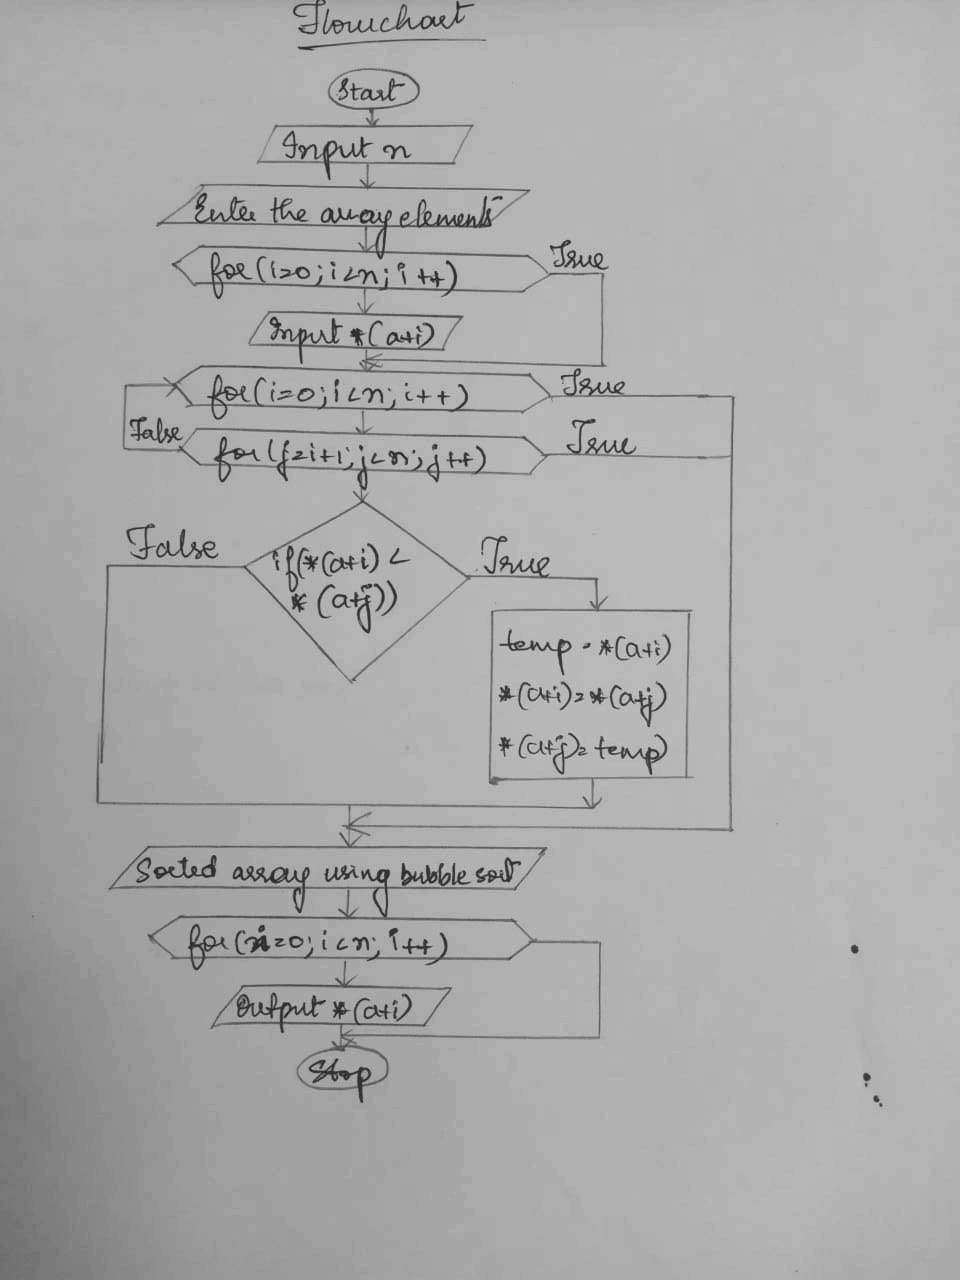 Flowchart
Start
Input n
Enter the array elements
for(i=0; i<n; i++)
True
Input *(a+i)
for(i=0; i<n; i++)
True
False
for(j=i+1; j<n; j++)
True
False
if(*(a+i) <
*(a+j))
True
temp = *(a+i)
*(a+i) = *(a+j)
*(a+j) = temp)
Sorted array using bubble sort
for(i=0; i<n; i++)
Output *(a+i)
Stop